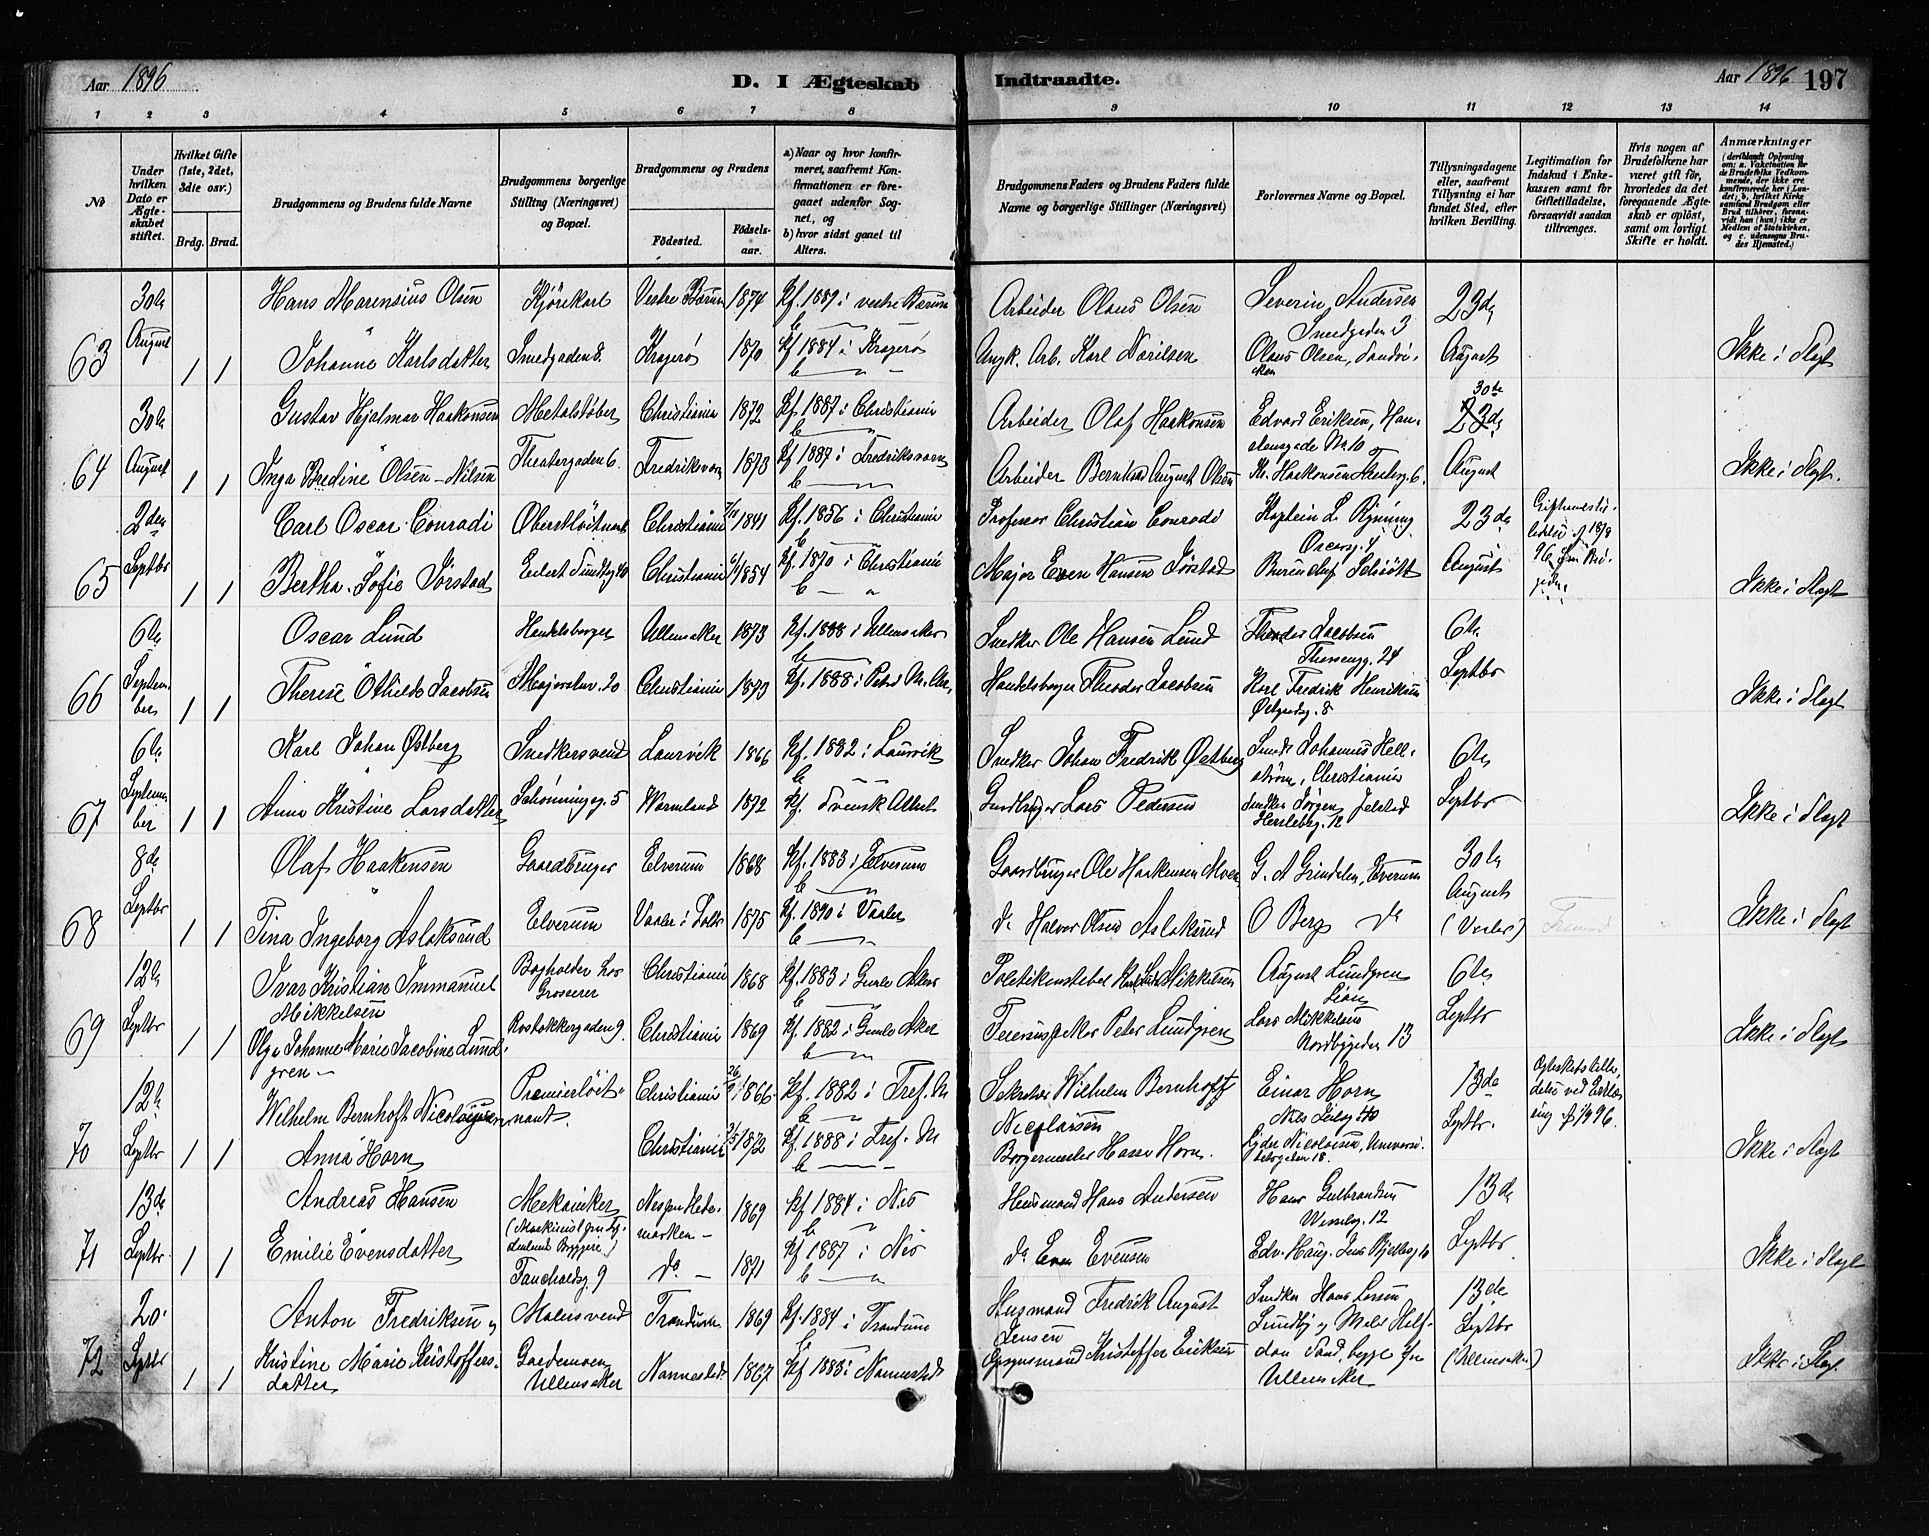 Aar 1896 D. I Ægteskab Indtraadte. Aar 1896 197
1 2 3 4 5 6 7 8 9 10 11 12 13 14
No
Under hvilken Dato er Ægteskabet stiftet.
Hvilket Gifte (1ste, 2det, 3die osv.)
Brdg. Brud.
Brudgommens og Brudens fulde Navne
Brudgommens borgerlige Stilling (Næringsvei) og Bopæl.
Brudgommens og Brudens
Fødested.
Fødselsaar.
a) Naar og hvor konfirmeret, saafremt Konfirmationen er foregaaet udenfor Sognet, og
b) hvor sidst gaaet til Alters.
Brudgommens Faders og Brudens Faders fulde Navne og borgerlige Stillinger (Næringsvei)
Forlovernes Navne og Bopæl.
Tillysningsdagene eller, saafremt Tillysning ei har fundet Sted, efter hvilken Bevilling.
Legitimation for Indskud i Enkekassen samt for Giftetilladelse, forsaavidt saadan tiltrænges.
Hvis nogen af Brudefolkene har været gift før, hvorledes da det foregaaende Ægteskab er opløst, samt om lovligt Skifte er holdt.
Anmærkninger
(deriblandt Oplysning om: a. Vaksination for de Brudefolks Vedkommende, der ikke ere konfirmerede her i Landet; b. hvilket Kirkesamfund Brudgom eller Brud tilhører, forsaavidt han (hun) ikke er Medlem af Statskirken, og c. udensogns Brudes Hjemsted.)
30te Hans Marensius Olsen Kjørekarl Vestre Bærum 1874 Kf. 1889 i vestre Bærum Arbeider Olaus Olsen Severin Andersen Smedgaden 3 23de
63 August 1 1 Johanne Karlsdatter Smedgaden 8. Kragerø 1870 Kf 1884 i Kragerø Arb. Karl Olaus Olsen, Sandviken August Ikke i Slægt
30te Gustav Hjalmar Haakonsen Metalstøber Christiania 1872 Kf. 1887 i Christiania Arbeider Olaf Haakonsen Edvard Eriksen, No 10 30te 23de
64 August 1 1 Inga Bredine Olsen-Nilsen Theatergaden 6. Fredriksværn 1873 Kf 1887 i Fredriksværn Arbeider Bernhard August Olsen Haakonsen August Ikke i Slægt.
2den Carl Oscar Conradi Oberstløitnant Christiania 1841 Kf. 1856 i Christiania Professor Christian Conradi Kaptein L. Rynning Oscarsg. 4 23de
65 Septbr 1 1 Bertha Sofie Sørstad Eilert Sundtsg 40 Christiania 1854 Kf. 1870 i Christiania Major Even Hansen Sørstad Schiøtt August Ikke i Slægt
6te Oscar Lund Handelsborger Ullensaker 1873 Kf. 1888 i Ullensaker Snedker Ole Hansen Lund Theodor Jacobsen 24 6te
66 September 1 1 Therese Othilde Jacobsen 20 Christiania 1873 Kf. 1888 i Handelsborger Theodor Jacobsen Karl Fredrik Henriksen 8 Septbr Ikke i Slægt
6te Karl Johan Østberg Snedkersvend Laurvik 1866 Kf. 1882 i Laurvik Snedker Johan Fredrik Østberg Johannes Hellstrøm, Christiania 6te
67 September 1 1 Anna Kristine Larsdatter Schønningsg. 5 Wermland 1872 Kf. Svensk Attest Gardbruger Lars Pedersen Snedker Jørgen Jelstad Herslebsg. 12 Septbr Ikke i Slægt
8de Olaf Haakensen Gaardbruger Elverum 1868 Kf. 1883 i Elverum Gaardbruger Ole Haakensen G. A Grindalen, Elverum 30te August
68 Septbr 1 1 Tina Ingeborg Aslaksrud Elverum Vaaler i Solør 1875 Kf. 1890 i Vaaler do Halvor Olsen Aslaksrud O Berg do (Vaaler) Ikke i Slægt
12te Ivar Kristian Immanuel Mikkelsen Bogholder hos Grosserer Christiania 1868 Kf. 1883 i Gamle Aker Politikonstabel Mikkelsen August Lundgren 6te
69 Septbr 1 1 Olga Johanne Marie Jacobine Lundgren Rostokkergaden 9. Christiania 1869 Kf. 1882 i Gamle Aker Peter Lundgren Lars Mikkelsen Nordbygaden 13 Septbr Ikke i Slægt
12te Wilhelm Bernhoft Nicolaysen Premierløitnant. Christiania 1866 Kf. 1882 i Tref. M Sekretær Wilhelm Bernhoft Nicolaisen Einar Horn Niels Juelsg 40 13de Septbr.
70 Septbr 1 1 Anna Horn Christiania 1872 Kf. 1888 i Tref. M Borgermester Hasse Horn. Nicolaisen, Universitetsgaden 18. Ikke i Slægt
13de Andreas Hansen Mekaniker Nes paa Hedemarken 1869 Kf 1884 i Nes Husmand Hans Andersen Hans Gulbrandsen Wesselsg. 12 13de
71 Septbr. 1 1 Emilie Evensdatter Fauchaldsg 9 do 1871 Kf 1887 i Nes do Even Evensen Edv. Haug, Septbr Ikke i Slægt
20. Anton Fredriksen Malersvend Trandum 1869 Kf. 1884 i Trandum Husmand Fredrik August Jensen Snedker Hans Larsen Sundby og Maler 13de Septbr
72 Septbr 1 1 Kristine Marie Kristoffersdatter Gardermoen Ullensaker Nannestad 1867 Kf 1883 i Nannestad Kristoffer Eriksen Sand, begge fra Ullensaker (Ullensaker) Ikke i Slægt